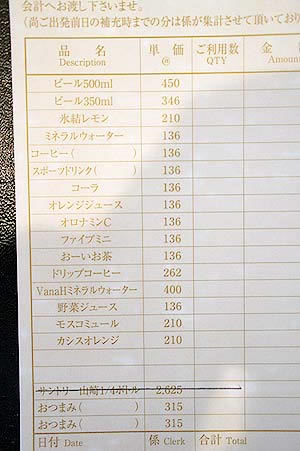 会計へお渡し下さいませ。
(尚ご出発前日の補充時までの分は係が集計させて頂いており
品名 単価 ご利用数 金
Description @ QTY Amount
ビール500ml 450
ビール350ml 346
氷結レモン 210
ミネラルウォーター 136
コーヒー( ) 136
スポーツドリンク( ) 136
コーラ 136
オレンジジュース 136
オロナミンC 136
ファイブミニ 136
おーいお茶 136
ドリップコーヒー 262
VanaHミネラルウォーター 400
野菜ジュース 136
モスコミュール 210
カシスオレンジ 210
サントリー山崎1/4ボトル 2,625
おつまみ( ) 315
おつまみ( ) 315
日付 Date 係 Clerk 合計 Total